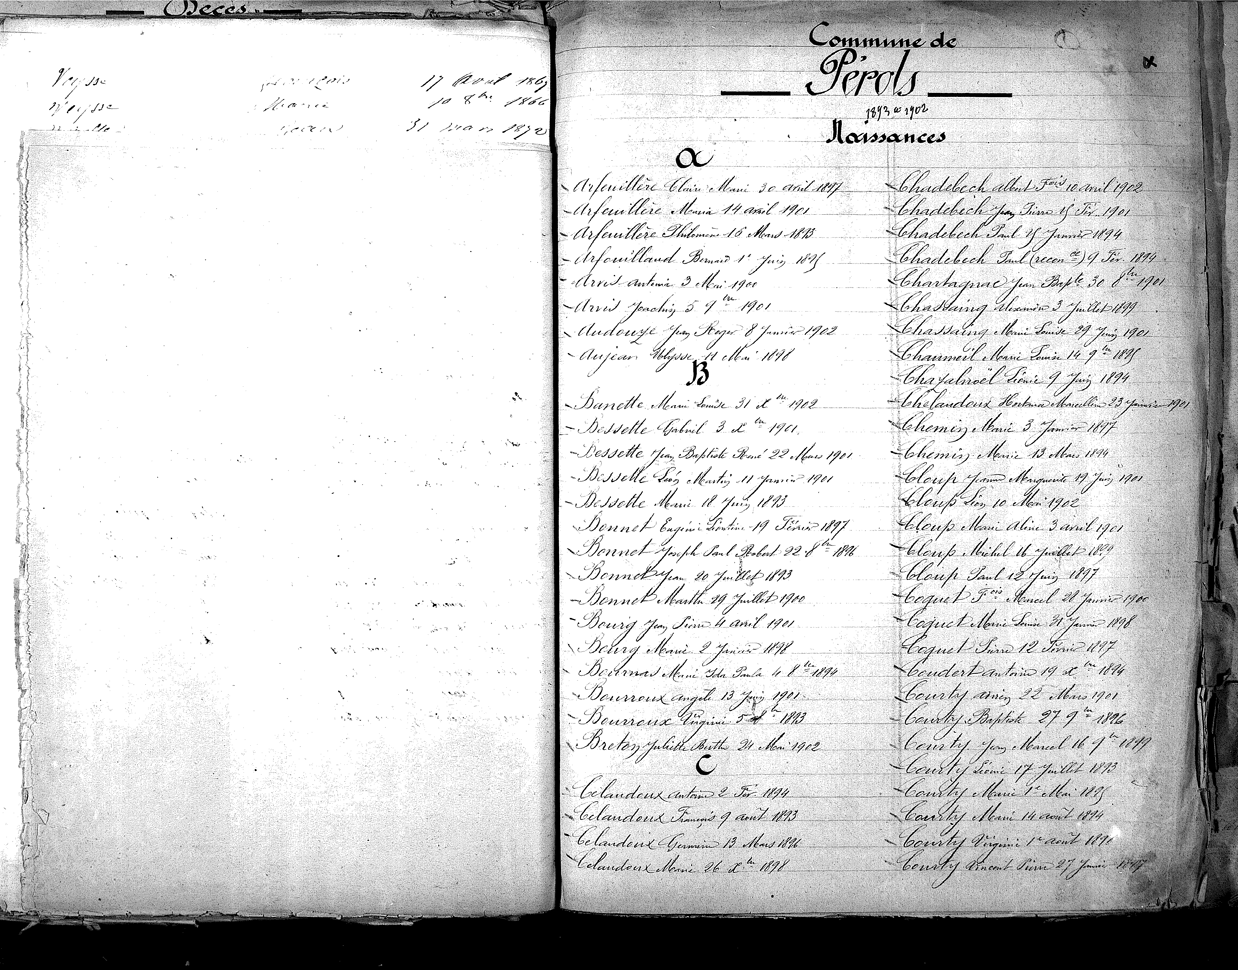 Décès
Veysse François 17 Aout 1869
Veysse Marie 10 8bre 1866
31 mars 1872
Commune de
Pérols
1893 à 1902
Naissances
A
Arfeuillère Claire Marie 30 avril 1897
Arfeuillère Maria 14 avril 1901
Arfeuillère Philomène 15 Mars 1893
Arfouilland Bernard 1r Juin 1895
Arvis Antonia 3 Mai 1900
Arvis Joachin 5 9bre 1901
Audouze Jean Roger 8 Janvier 1902
Aujean Ulysse 11 Mai 1898
B
Banette Marie Louise 31 Xbre 1902
Bessette Gabriel 3 Xbre 1901
Bessette Jean Baptiste René 22 Mars 1901
Bessette Léon Martin 11 Janvier 1901
Bessette Marie 18 Juin 1893
Bonnet Eugénie Léontine 19 Février 1897
Bonnet Joseph Paul Robert 22 8bre 1896
Bonnet Jean 20 Juillet 1893
Bonnet Marthe 29 Juillet 1900
Bourg Jean Pierre 4 avril 1901
Bourg Marie 2 Janvier 1898
Bournas Marie Ida Paula 4 8bre 1894
Bourroux Angèle 13 Juin 1901
Bourroux Virginie 5 8bre 1893
Breton Juliette Berthe 24 Mai 1902
C
Célandoux Antoine 2 Fév. 1894
Celandoux François 9 août 1893
Celandoux Germain 13 Mars 1896
Celandoux Marie 26 Xbre 1898
Chadebech Albert Fois 10 avril 1902
Chadebech Jean Pierre 15 Fév. 1901
Chadebech Paul 15 Janvier 1894
Chadebech Paul (recon ce) 9 Fév. 1894
Chartagnac Jean Bapte 30 8bre 1901
Chassaing Alexandre 3 Juillet 1899
Chassaing Marie Louise 29 Juin 1901
Chaumeil Marie Louise 14 9bre 1895
Chazalnoël Léonie 9 Juin 1894
Chélandoux Hortense Marcelline 23 Janvier 1901
Chemin Marie 3 Janvier 1897
Chemin Marie 13 Mars 1894
Cloup Jeanne Marguerite 19 Juin 1901
Cloup Léon 10 Mai 1902
Cloup Marie Aline 3 avril 1901
Cloup Michel 16 Juillet 1899
Cloup Paul 12 Juin 1897
Coquet Fois Marcel 28 Janvier 1900
Coquet Marie Louise 31 Janvier 1898
Coquet Pierre 12 Février 1897
Coudert Antoine 19 Xbre 1894
Courty Adrien 22 Mars 1901
Courty Baptiste 27 9bre 1896
Courty Jean Marcel 16 9bre 1899
Courty Léonie 17 Juillet 1893
Courty Marie 1r Mai 1895
Courty Marie 14 août 1894
Courty Virginie 1r août 1896
Courty Vincent Pierre 27 Janvier 1897